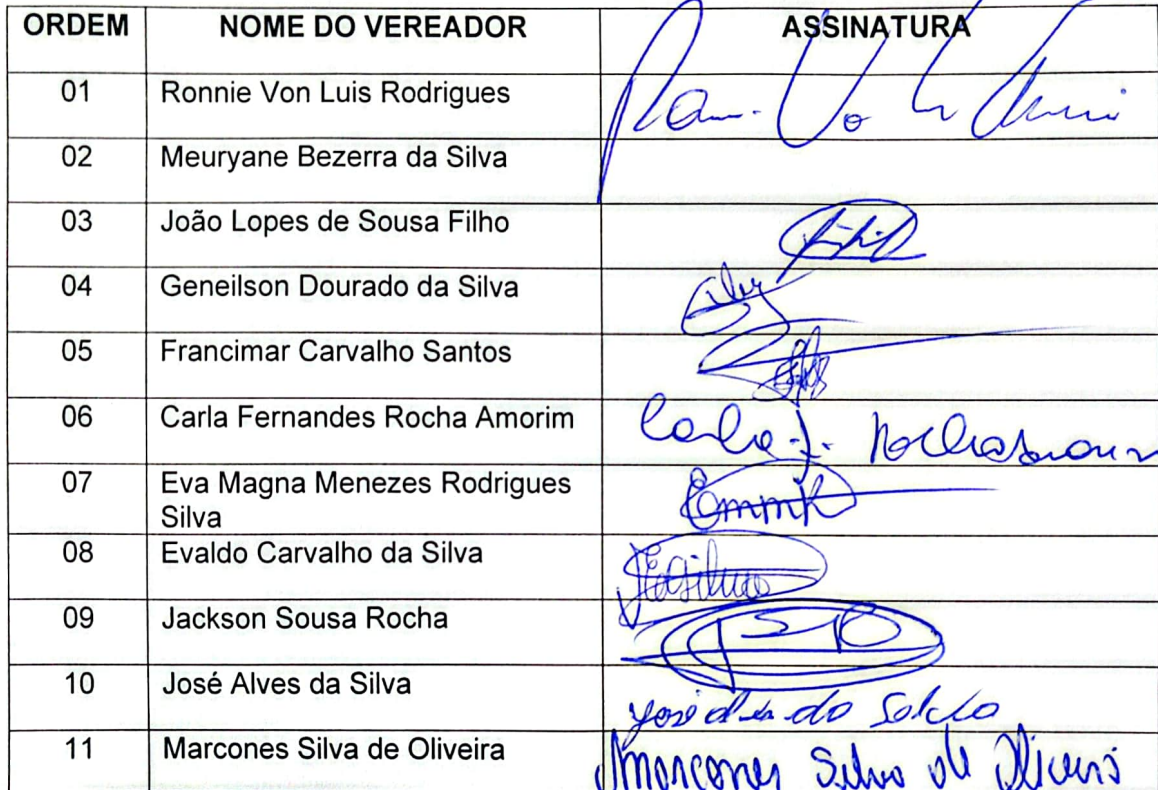 ORDEM NOME DO VEREADOR ASSINATURA
01 Ronnie Von Luis Rodrigues
02 Meuryane Bezerra da Silva
03 João Lopes de Sousa Filho
04 Geneilson Dourado da Silva
05 Francimar Carvalho Santos
06 Carla Fernandes Rocha Amorim Carla F. Rocha Amorim
07 Eva Magna Menezes Rodrigues
Silva
08 Evaldo Carvalho da Silva
09 Jackson Sousa Rocha
10 José Alves da Silva José
11 Marcones Silva de Oliveira Marcones Silva de Oliveira